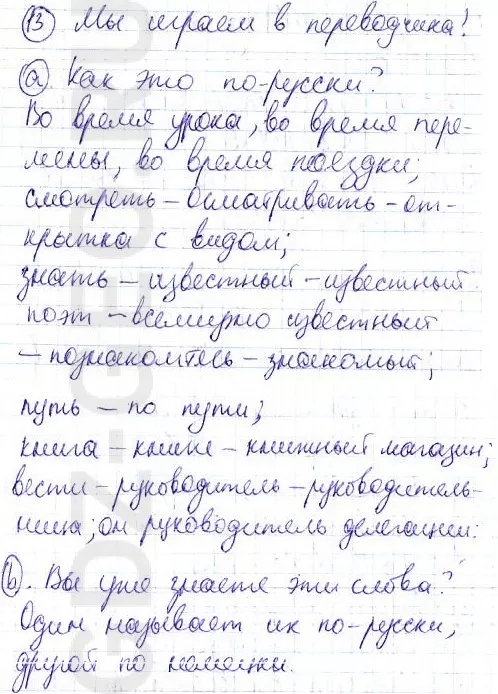 13 Мы играем в переводчика!
a. Как это по-русски?
Во время урока, во время пере-
мены, во время поездки;
смотреть – осматривать – от-
крытка с видом;
знать – известный – известный
поэт – всемирно известный
– познакомтесь – знакомый;
путь – по пути;
книга – книги – книжный магазин;
вести – руководитель – руководитель-
ница; он руководитель делегации.
b. Вы уже знаете эти слова?
Один называет их по-русски,
другой по немецки.
GDZ-GEO.RU